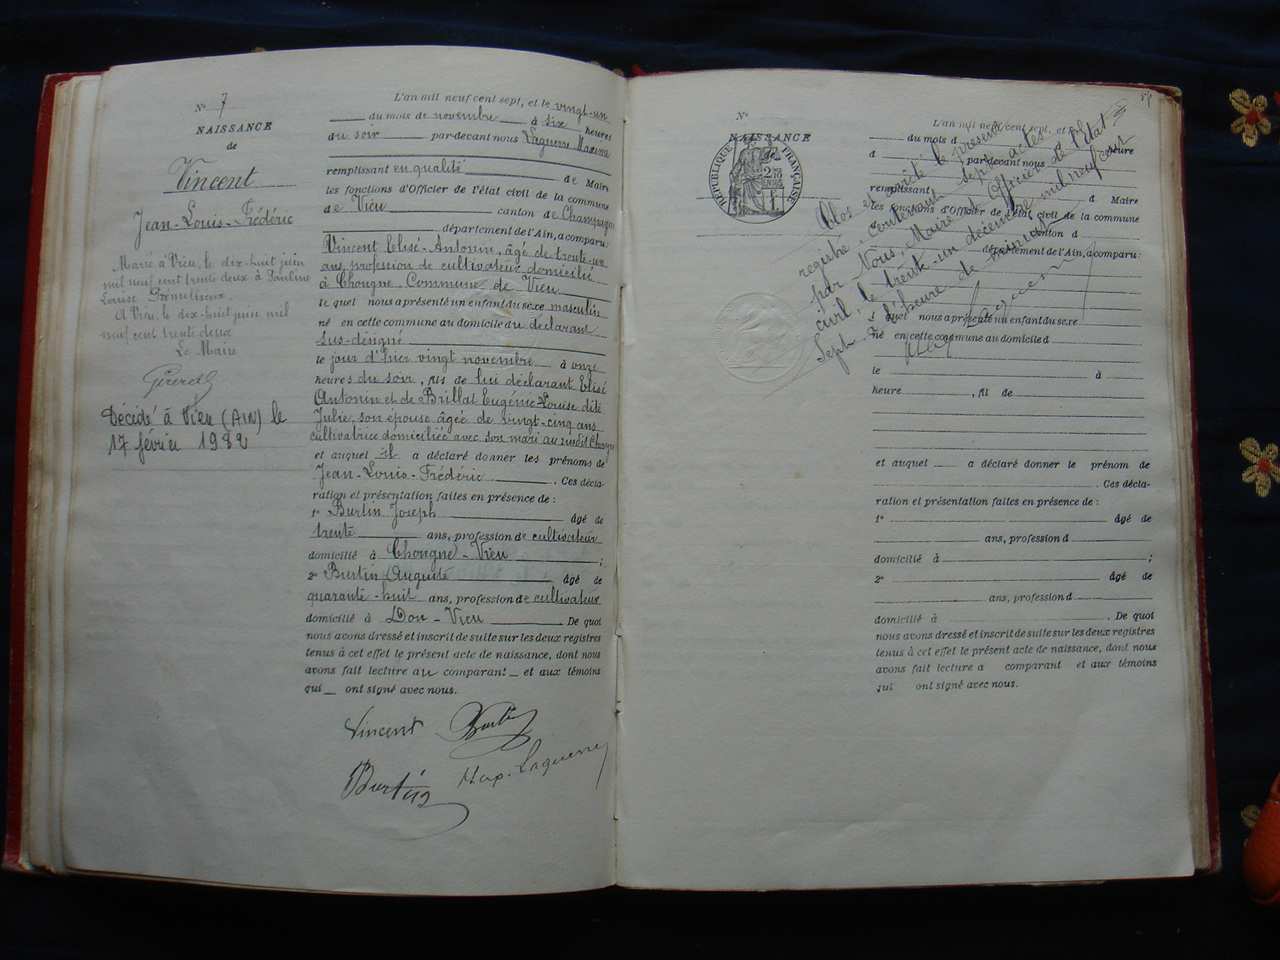 N° 7
NAISSANCE
de
Vincent
Jean-Louis-Frédéric
Marié à Vieu, le dix-huit juin
mil neuf cent trente deux à Pauline
Louise
A Vieu, le dix-huit juin mil
neuf cent trente deux
Le Maire
Décédé à Vieu (AIN) le
17 février 1982
L'an mil neuf cent sept, et le vingt-un
du mois de novembre à six heures
du soir par-devant nous Laguerre Maxime
remplissant en qualité de Maire
les fonctions d'Officier de l'état civil de la commune
de Vieu canton de Champagne
département de l'Ain, a comparu:
Vincent Elisé-Antonin, âgé de trente-un
ans profession de cultivateur domicilié
à Chongne Commune de Vieu
lequel nous a présenté un enfant du sexe masculin
né en cette commune au domicile du déclarant
sus-désigné
le jour d'hier vingt novembre à onze
heures du soir, fils de lui déclarant Elisé
Antonin et de Brillat Eugénie Louise dite
Julie, son épouse âgée de vingt-cinq ans
cultivatrice domiciliée avec son mari au susdit Chongne
et auquel il a déclaré donner les prénoms de
Jean-Louis-Frédéric. Ces décla-
ration et présentation faites en présence de:
1° Burtin Joseph âgé de
trente ans, profession de cultivateur
domicilié à Chongne-Vieu;
2° Burtin Auguste âgé de
quarante-huit ans, profession de cultivateur
domicilié à Don-Vieu. De quoi
nous avons dressé et inscrit de suite sur les deux registres
tenus à cet effet le présent acte de naissance, dont nous
avons fait lecture au comparant et aux témoins
qui ont signé avec nous.
Vincent Burtin
Burtin Max. Laguerre
N°
NAISSANCE
de
RÉPUBLIQUE FRANÇAISE
L'an mil neuf cent sept, et le
du mois d à heure
d par-devant nous
remplissant de Maire
les fonctions d'Officier de l'état civil de la commune
d canton d
département de l'Ain, a comparu:
quel nous a présenté un enfant du sexe
né en cette commune au domicile d
le à
heure, fil de
et auquel a déclaré donner le prénom de
. Ces décla-
ration et présentation faites en présence de:
1° âgé de
ans, profession d
domicilié à ;
2° âgé de
ans, profession d
domicilié à . De quoi
nous avons dressé et inscrit de suite sur les deux registres
tenus à cet effet le présent acte de naissance, dont nous
avons fait lecture a comparant et aux témoins
qui ont signé avec nous.
Clos et arrêté le présent
registre, contenant sept actes,
par Nous, Maire et Officier de l'état
civil, le trente-un décembre mil neuf cent
sept, à l'heure de
Laguerre